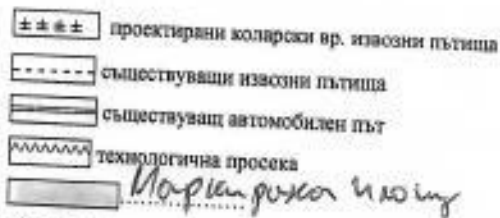 проектирани коларски вр. извозни пътища
съществуващи извозни пътища
съществуващ автомобилен път
технологична просека